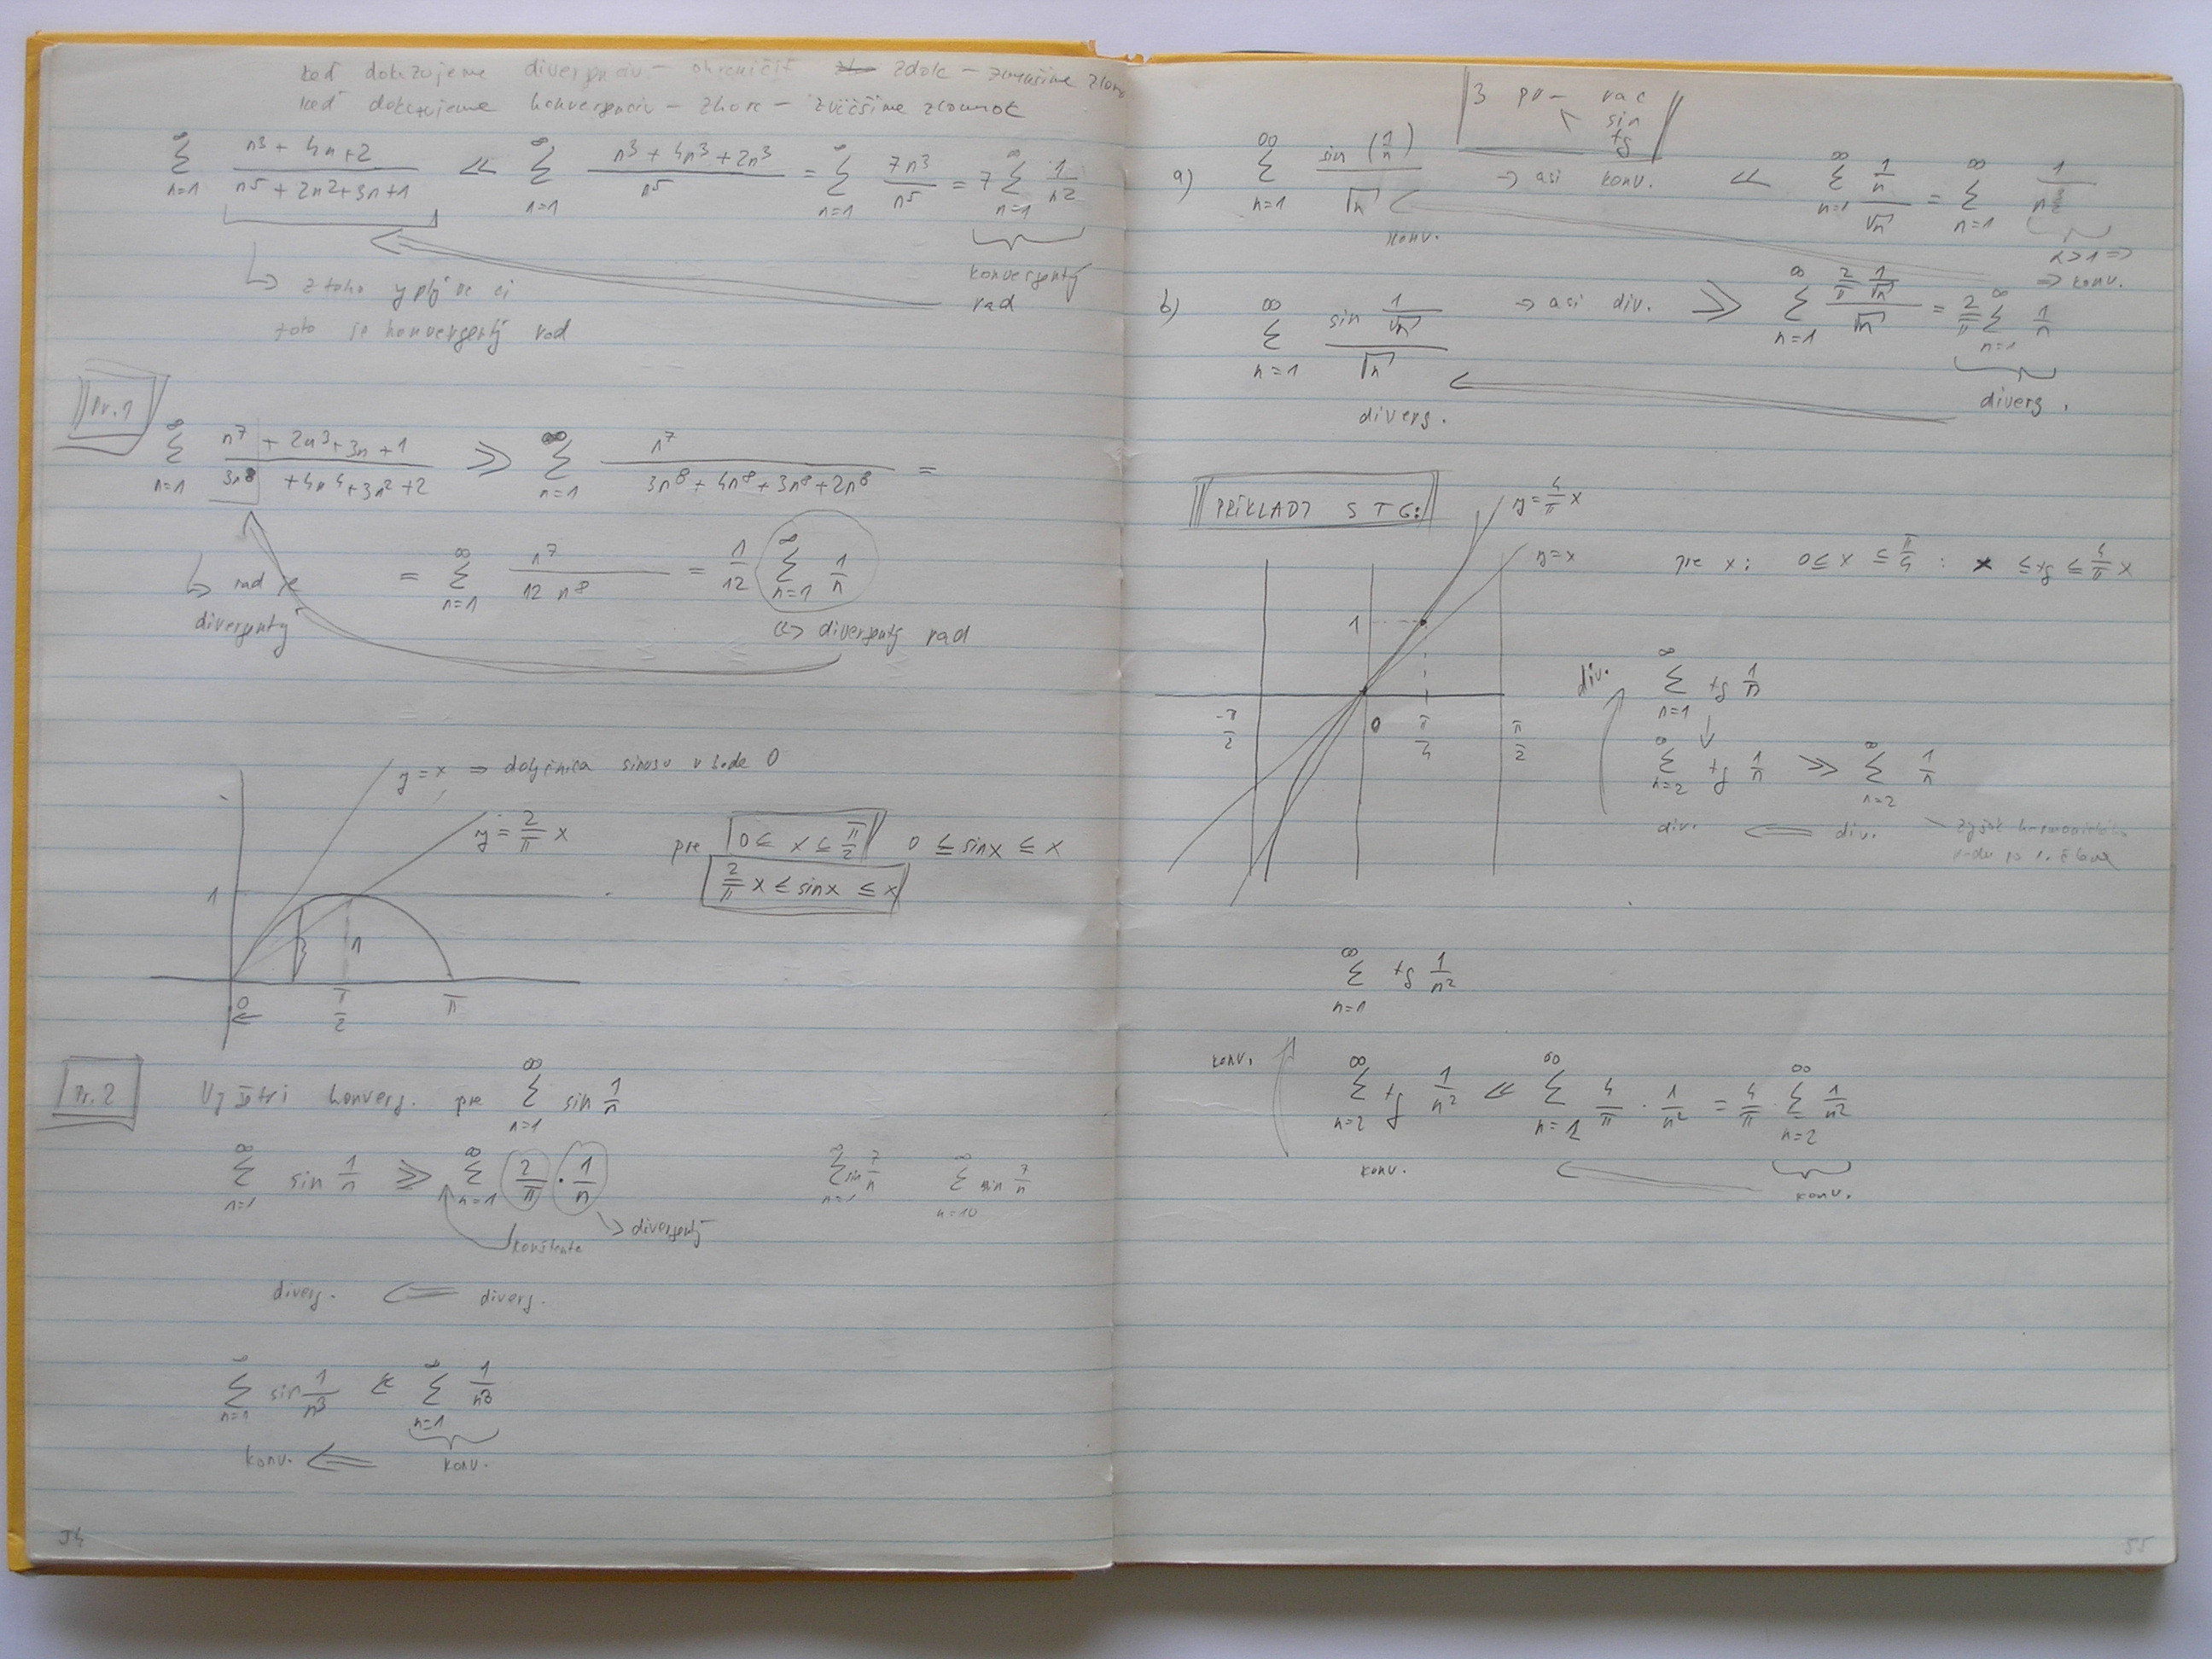 keď dokazujeme divergenciu - ohraničiť zdola - zmenšíme zlom
keď dokazujeme konvergenciu - zhora - zväčšíme zlomok
∞ ∑ n=1 (n³ + 4n + 2)/(n⁵ + 2n² + 3n + 1) ≪ ∞ ∑ n=1 (n³ + 4n³ + 2n³)/n⁵ = ∞ ∑ n=1 7n³/n⁵ = 7 ∞ ∑ n=1 1/n²
konvergentý
rad
↳ z toho
toto je konvergentý rad
Pr. 1
∞ ∑ n=1 (n⁷ + 2n³ + 3n + 1)/(3n⁸ + 4n⁴ + 3n² + 2) ≫ ∞ ∑ n=1 n⁷/(3n⁸ + 4n⁸ + 3n⁸ + 2n⁸) =
= ∞ ∑ n=1 n⁷/(12 n⁸) = 1/12 ∞ ∑ n=1 1/n
↳ rad je
divergentý
↳> divergentý rad
y = x ⇒ dotyčnica sínusu v bode 0
y = 2/π x
pre 0 ≤ x ≤ π/2 0 ≤ sinx ≤ x
2/π x ≤ sinx ≤ x
1
1
0 π/2 π
Pr. 2
Vyšetri konverg. pre ∞ ∑ n=1 sin 1/n
∞ ∑ n=1 sin 1/n ≥ ∞ ∑ n=1 2/π · 1/n
∞ ∑ n=1 sin 7/n ∞ ∑ n=10 sin 7/n
konštanta
divergentý
diverg. ⇐ diverg.
∞ ∑ n=1 sin 1/n³ ≤ ∞ ∑ n=1 1/n³
konv. ⇐ konv.
54
3 pr - rac
sin
tg
a) ∞ ∑ n=1 sin (1/n)/√n → asi konv. ≪ ∞ ∑ n=1 (1/n)/√n = ∞ ∑ n=1 1/n^(3/2)
konv.
α > 1 ⇒
⇒ konv.
b) ∞ ∑ n=1 sin (1/√n)/√n → asi div. ≫ ∞ ∑ n=1 (2/π 1/√n)/√n = 2/π ∞ ∑ n=1 1/n
diverg.
diverg.
PRÍKLADY S TG:
y = 4/π x
y = x
pre x: 0 ≤ x ≤ π/4 : x ≤ tg ≤ 4/π x
1
-π/2 0 π/4 π/2
div. ∞ ∑ n=1 tg 1/n
∞ ∑ n=2 tg 1/n ≫ ∞ ∑ n=2 1/n
div. ⇐ div.
∞ ∑ n=1 tg 1/n²
konv. ∞ ∑ n=2 tg 1/n² ≪ ∞ ∑ n=1 4/π · 1/n² = 4/π · ∞ ∑ n=2 1/n²
konv.
konv.
55